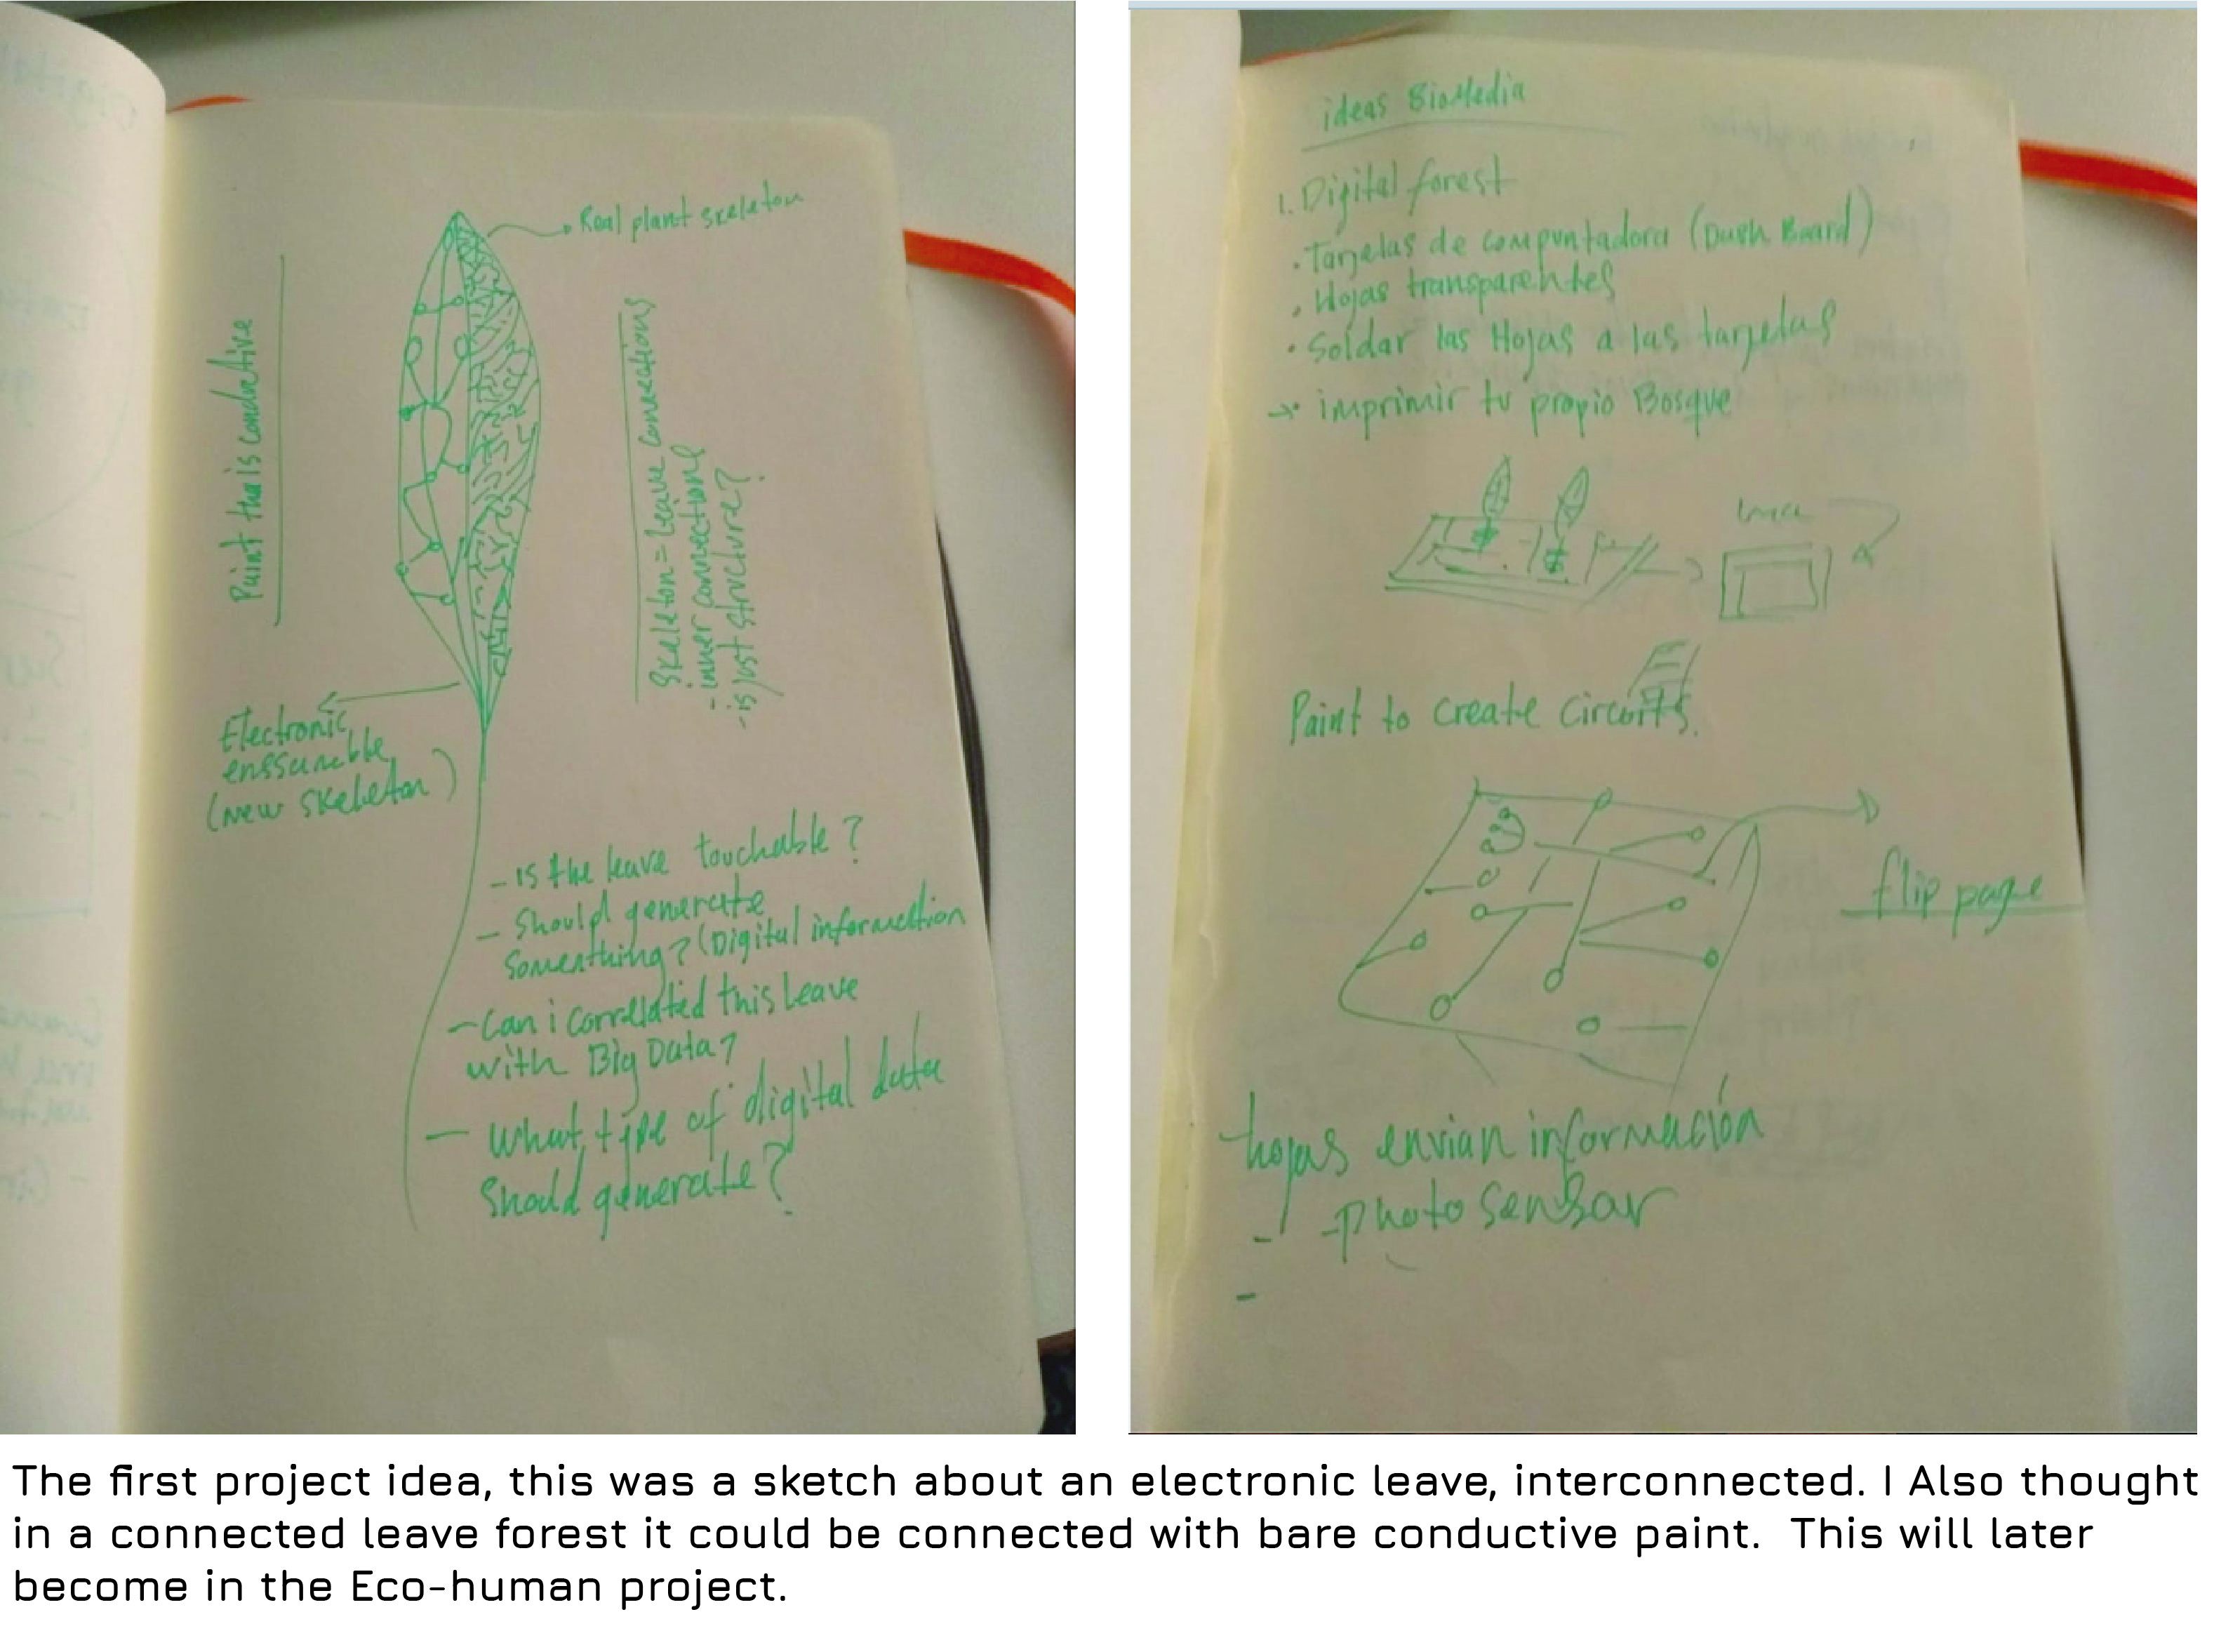 Real plant skeleton
Paint tha is conductive
Skeleton = Leave connections
- inner connections
- is just structure?
Electronic
enssamble
(new skeleton)
- is the leave touchable?
- Should generate
something? (Digital information
- Can i correlated this leave
with Big Data?
- What type of digital data
Should generate?
ideas BioMedia
1. Digital forest
• Tarjetas de compuntadora (Dush Board)
• Hojas transparentes
• Soldar las Hojas a las tarjetas
→ • imprimir tu propio Bosque
Paint to create circuits.
flip page
hojas envian información
- Photo sensor
-
The first project idea, this was a sketch about an electronic leave, interconnected. I Also thought
in a connected leave forest it could be connected with bare conductive paint. This will later
become in the Eco-human project.